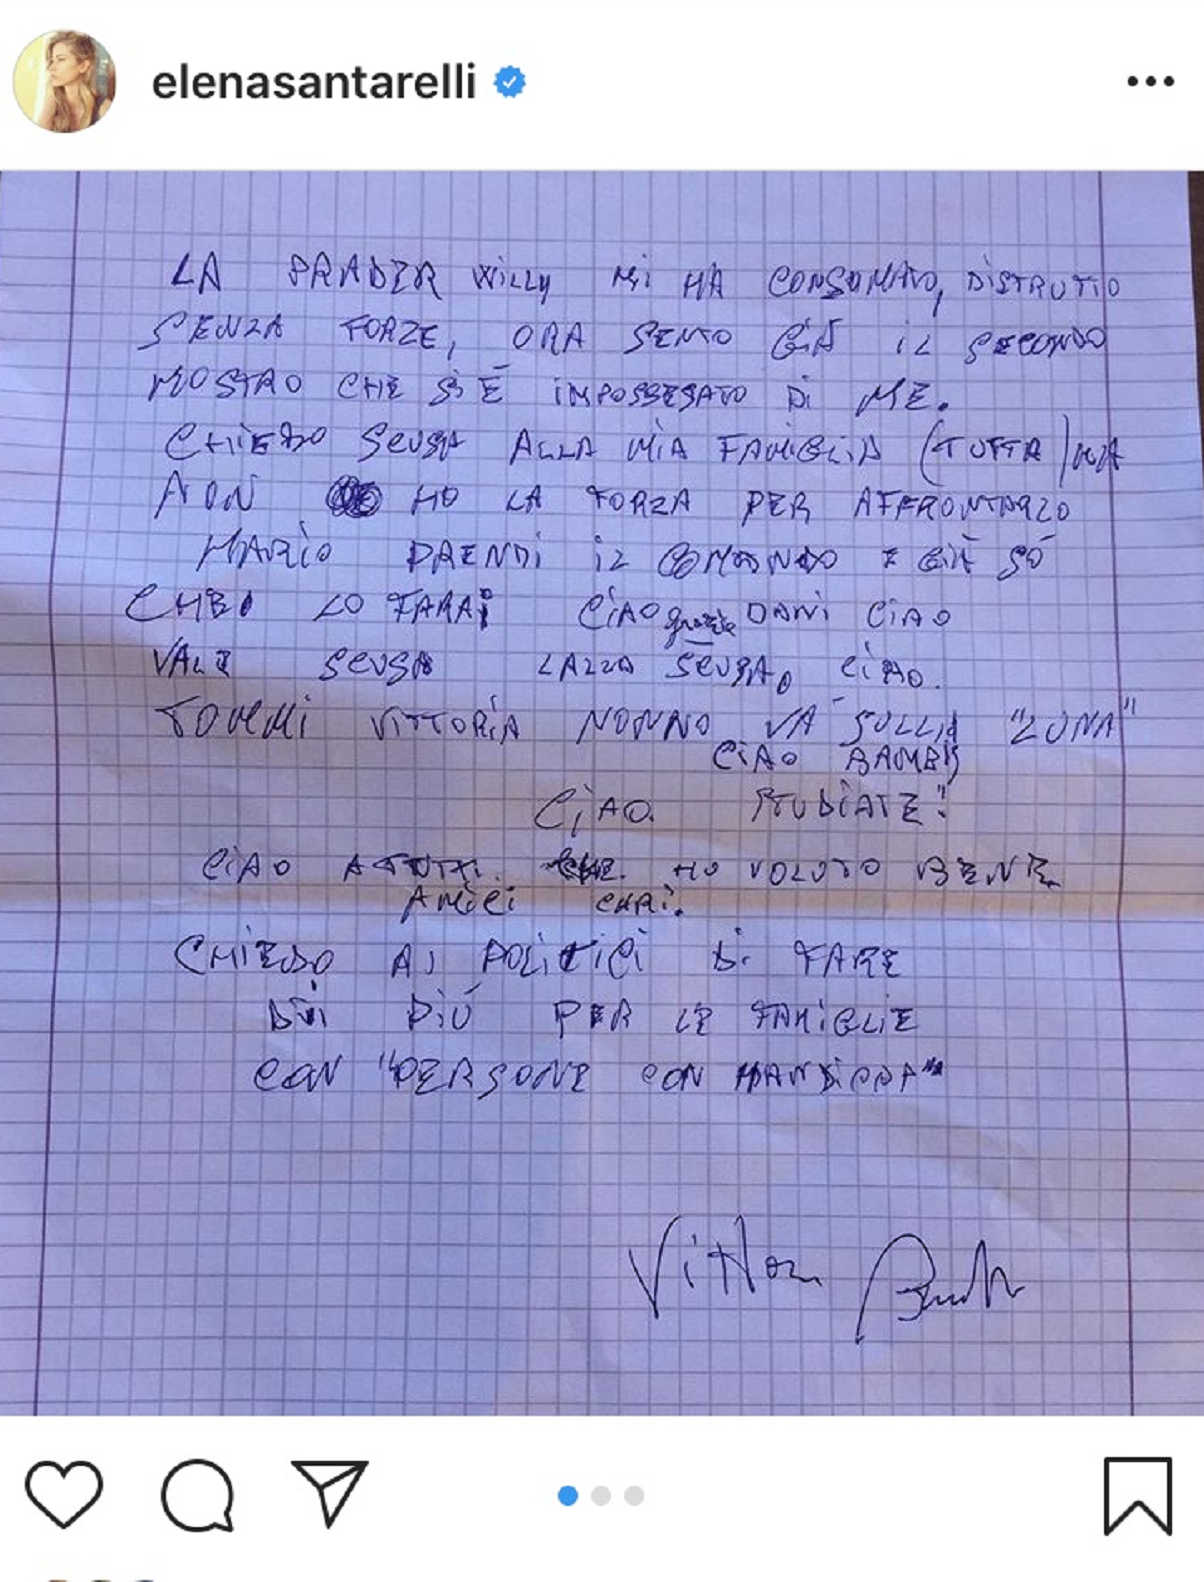 elenasantarelli
LA PRADER Willy Mi HA CONSUMATO, DISTRUTTO
SENZA FORZE, ORA SENTO GIÀ IL SECONDO
MOSTRO CHE SI È IMPOSSESATO DI ME.
CHIEDO SCUSA ALLA MIA FAMIGLIA (TUTTA) MA
NON HO LA FORZA PER AFFRONTARLO
MARIO PRENDI IL COMANDO E GIÀ SÒ
LO FARAI CIAO grazie DANI CIAO
VALE SCUSA SCUSA, CIAO.
VITTORIA NONNO VÀ SULLA "LUNA"
CIAO BAMBI
CIAO. STUDIATE!
CIAO A TUTTI. HO VOLUTO BENE
AMICI CARI.
CHIEDO AI POLITICI DI FARE
DI PIÚ PER LE FAMIGLIE
CON "PERSONE CON HANDICAP"